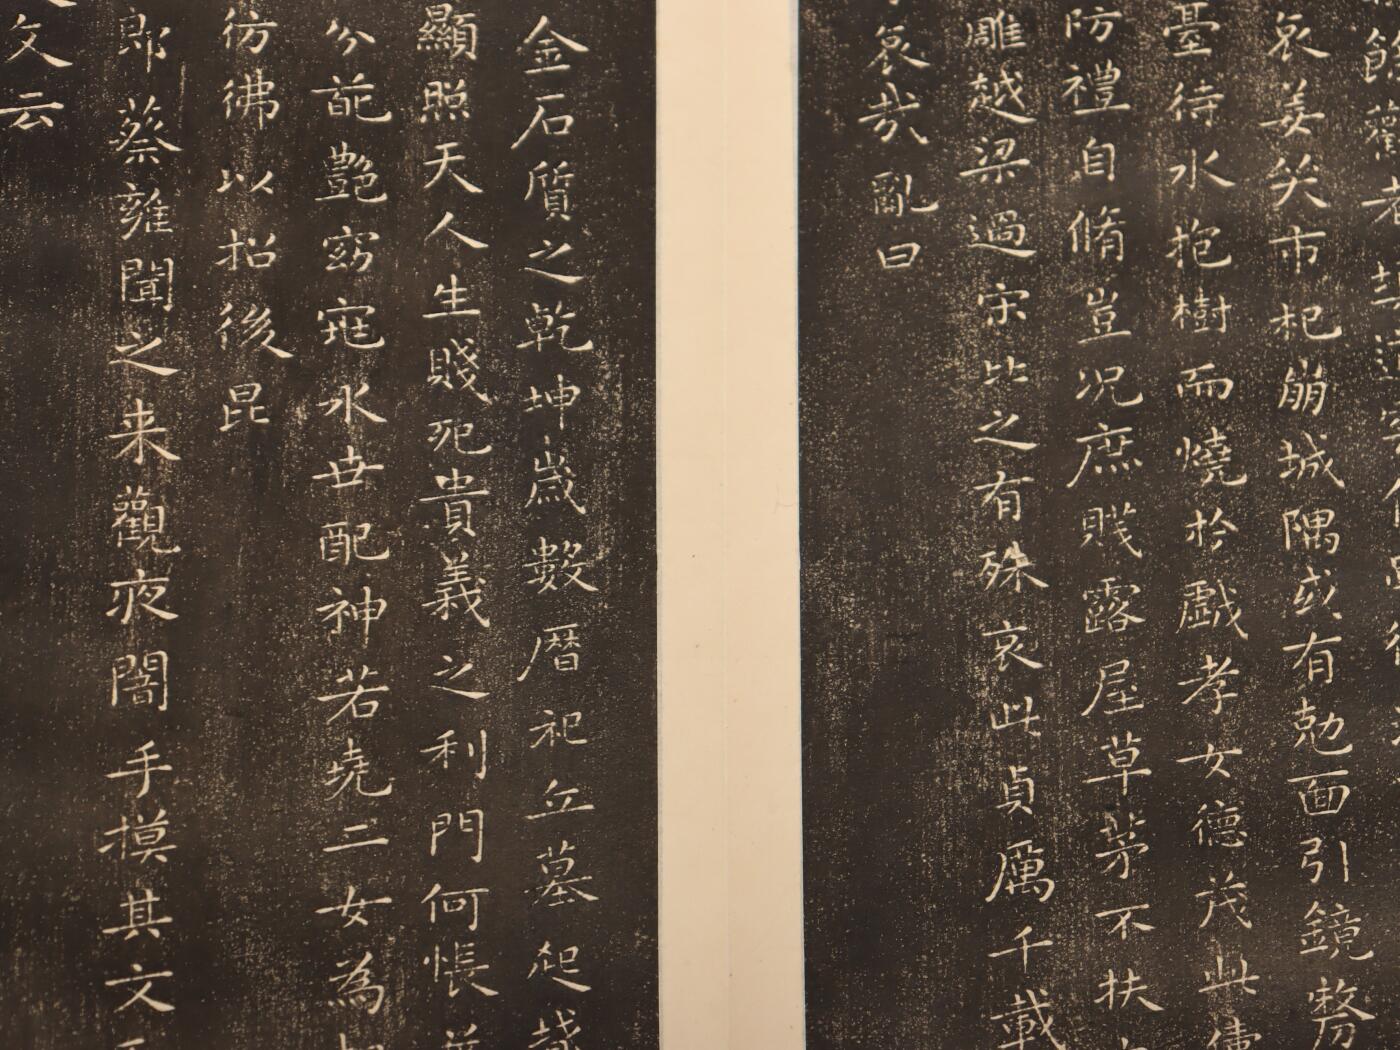 餘觀者
哀姜哭市杞崩城隅或有勊面引鏡剺
臺待水抱樹而燒於戲孝女德茂此
防禮自脩豈況庶賤露屋草茅不扶
雕越梁過宋比之有殊哀此貞厲千載
哀哉亂曰
金石質之乾坤歲數曆祀丘墓起
顯照天人生賤死貴義之利門何悵
分葩艷窈窕永世配神若堯二女為
彷彿以招後昆
郎蔡雍聞之来觀夜闇手摸其文
文云